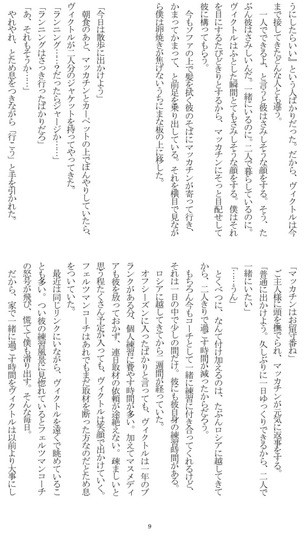 うにしたらいい』という人ばかりだった。だから、ヴィクトルは今
まで接してきたどんな人とも違う。
　一人でできるよ、と言うと彼はさみしそうな顔をする。そう、た
ぶん彼はさみしいんだ。一緒にいるのに、二人で暮らしているのに。
ヴィクトルはふとした瞬間とてもさみしそうな顔をする。僕はそれ
を目にするたびどきりとするから、マッカチンにそっと目配せして
彼に構ってもらう。
　今もソファの上で髪を拭く彼のそばにマッカチンが寄って行き、
かまってかまって、と前足を乗り出している。それを横目で見なが
ら僕は卵焼きが焦げないうちにまな板の上に移した。
「今日は散歩に出かけよう」
朝食のあと、マッカチンとカーペットの上でぼんやりしていたら、
ヴィクトルが二人分のジャケットを持ってやってきた。
「ランニング……？だったらジャージか……」
「ランニングはさっき行ったばかりだろ」
「あ、それもそうか……」
やれやれ、とため息をつきながら「行こう」と手を引かれた。
「マッカチンはお留守番ね」
ご主人様に頭を撫でられ、マッカチンが元気に返事をする。
「普通に出かけよう。久しぶりに一日ゆっくりできるから、二人で
一緒にいたい」
「……うん」
　とくべつに、なんて付け加えるのは、たぶんロシアに越してきて
から、二人きりで過ごす時間が減ったからだろう。
　もちろん今もコーチとして一緒に練習に付き合ってくれるけど、
それは一日の中で少しの間だけ。彼にも彼自身の練習時間がある。
　ロシアに越してきて一週間が経っていた。
　オフシーズンに入ったばかりと言っても、ヴィクトルは一年のブ
ランクがある分、個人練習に費やす時間が多い。加えてマスメディ
アも彼を放っておかず、連日取材の依頼が途絶えない。疎ましいと
思う程たくさん予定が入っても、ヴィクトルは笑顔で出かけていく。
フェルツマンコーチはあれでもまだ取材を断った方なのだとため息
をついていた。
　最近は同じリンクにいながら、ヴィクトルを遠くで眺めているこ
とも多い。つい彼の練習風景に見惚れているとフェルツマンコーチ
の怒号が飛び、慌てて僕も滑り出す。そんな毎日。
　だから、家で一緒に過ごす時間をヴィクトルは以前より大事にし
9